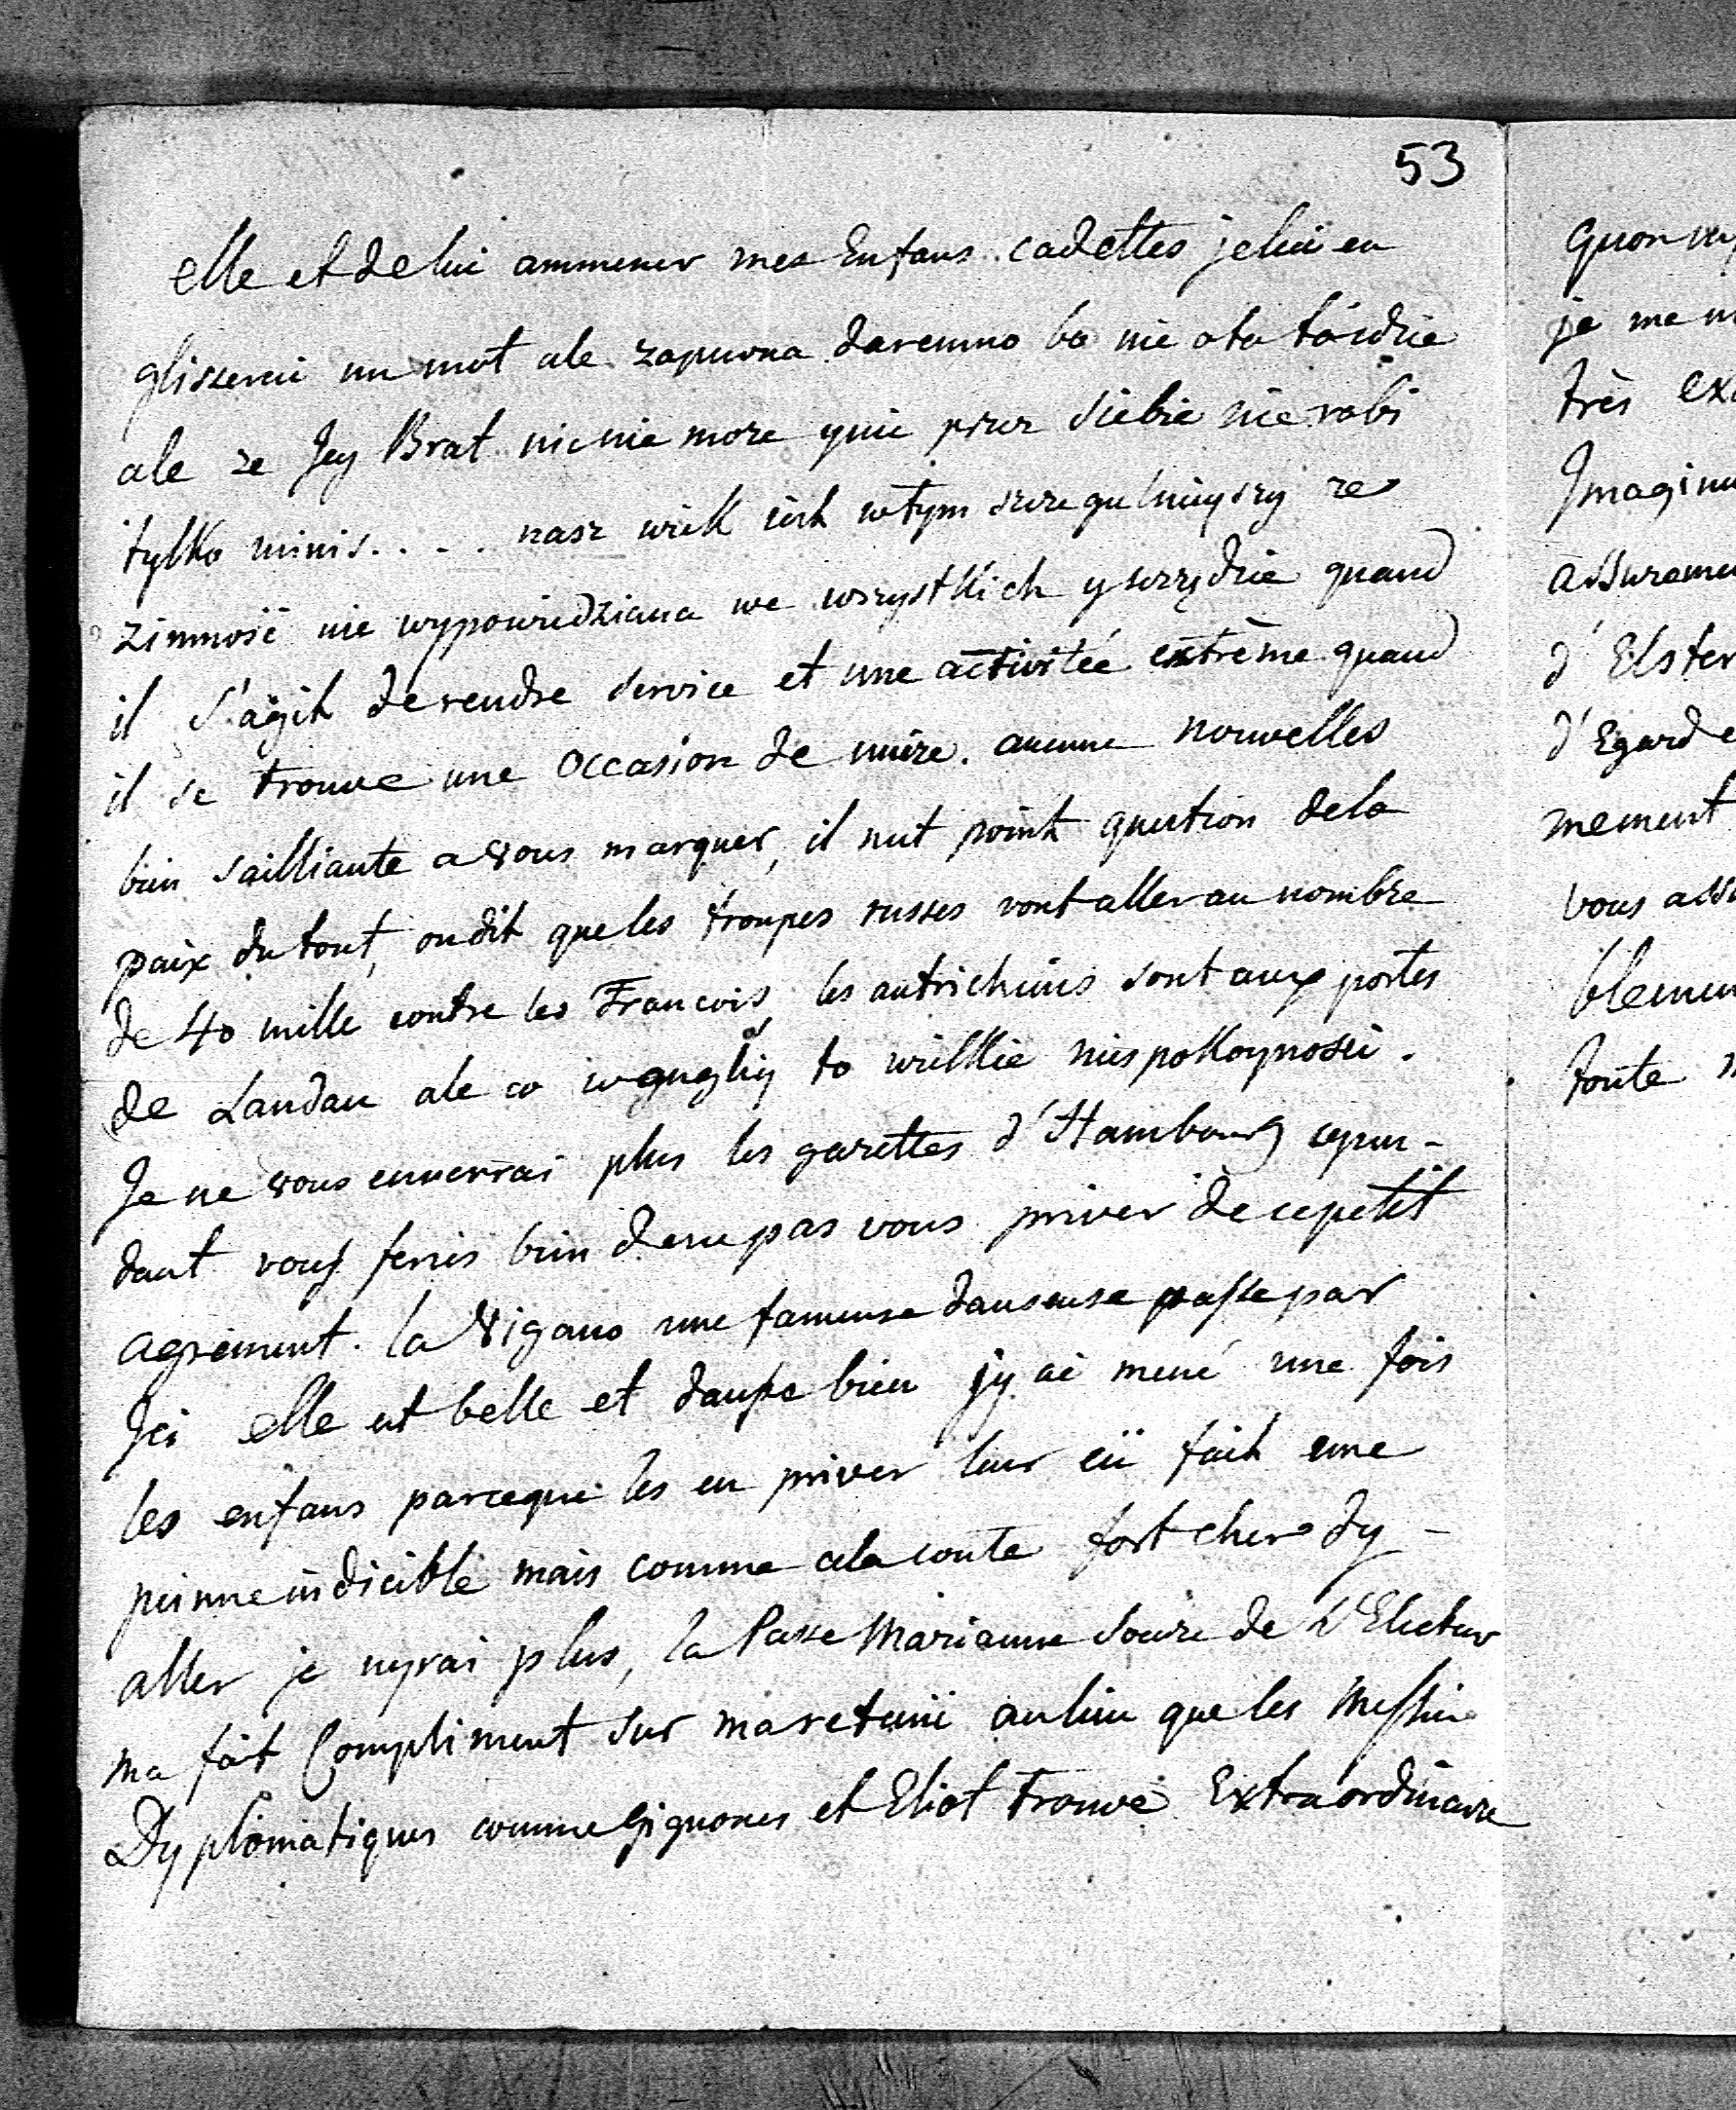 53
elle et de lui ammener mes Enfans cadettes je lui en
glisserai un mot ale zapewna daremno bo nie ota
ale ze Jey Brat nic nie moze ynic przez Siebie nie robi
tylko minis.... nasz wiek iest wtym szczegulnieyszy ze
zimnosc nie wypowiedziana we wszystkich y wszędzie quand
il S'agit de rendre service et une activitée extrème quand
il se trouve une occasion de nuire. aucune nouvelles
bien sailliante a vous marquer, il nest point question dela
paix du tout, on dit que les troupes russes vont aller au nombre
de 40 mille contre les Francois, les autrichiens sont aux portes
de Landau ale co to wielkie niespokoynosci.
Je ne vous enverrai plus les gazettes d'Hambourg cepen-
dant vous feriés bien dene pas vous priver de cepetit
agrement. la Vigano une fameuse danseuse passe par
Jci elle est belle et danse bien jy ai mené une fois
les enfans parceque les en priver leur eü fait une
peinne indicible mais comme cela coute fort cher dy-
aller je nyrai plus, la Psse Marianne Soeure de L'Electeur
ma fait Compliment sur maretenüe aulieu que les Messieu
Dyplomatiques comme et Eliot Trouve Extraordinaire
Quon
je me
très
Imagin
assureme
d'Elster
d'Egard
mement
vous assu
blemen
toute